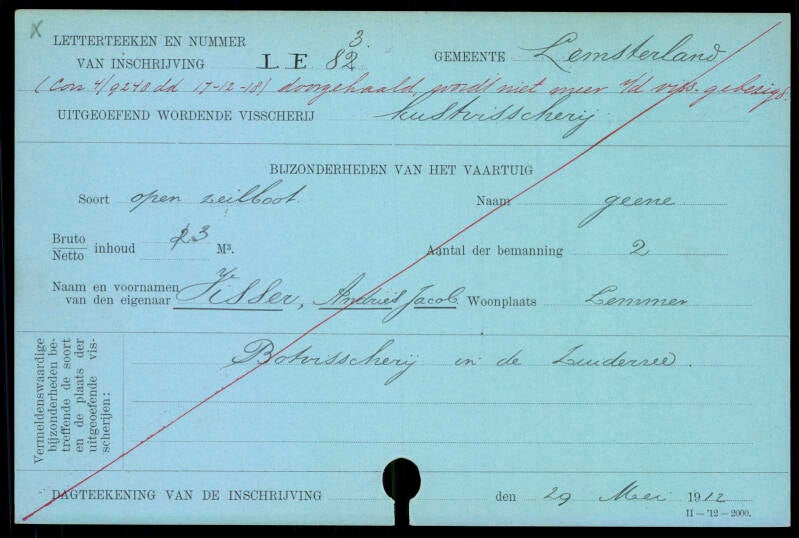 x
LETTERTEEKEN EN NUMMER
VAN INSCHRIJVING L E 82 3 GEMEENTE Lemsterland
(Con 4/9240 dd 17-12-18) doorgehaald, wordt niet meer v/d viss. gebezigd.
UITGEOEFEND WORDENDE VISSCHERIJ kustvisscherij
BIJZONDERHEDEN VAN HET VAARTUIG
Soort open zeilboot. Naam geene
Bruto
Netto inhoud 3 M³. Aantal der bemanning 2
Naam en voornamen
van den eigenaar Visser, Andries Jacob Woonplaats Lemmer
Vermeldenswaardige
bijzonderheden be-
treffende de soort
en de plaats der
uitgeoefende vis-
scherijen:
Botvisscherij in de Zuiderzee.
DAGTEEKENING VAN DE INSCHRIJVING den 29 Mei 1912
II — '12 — 2000.